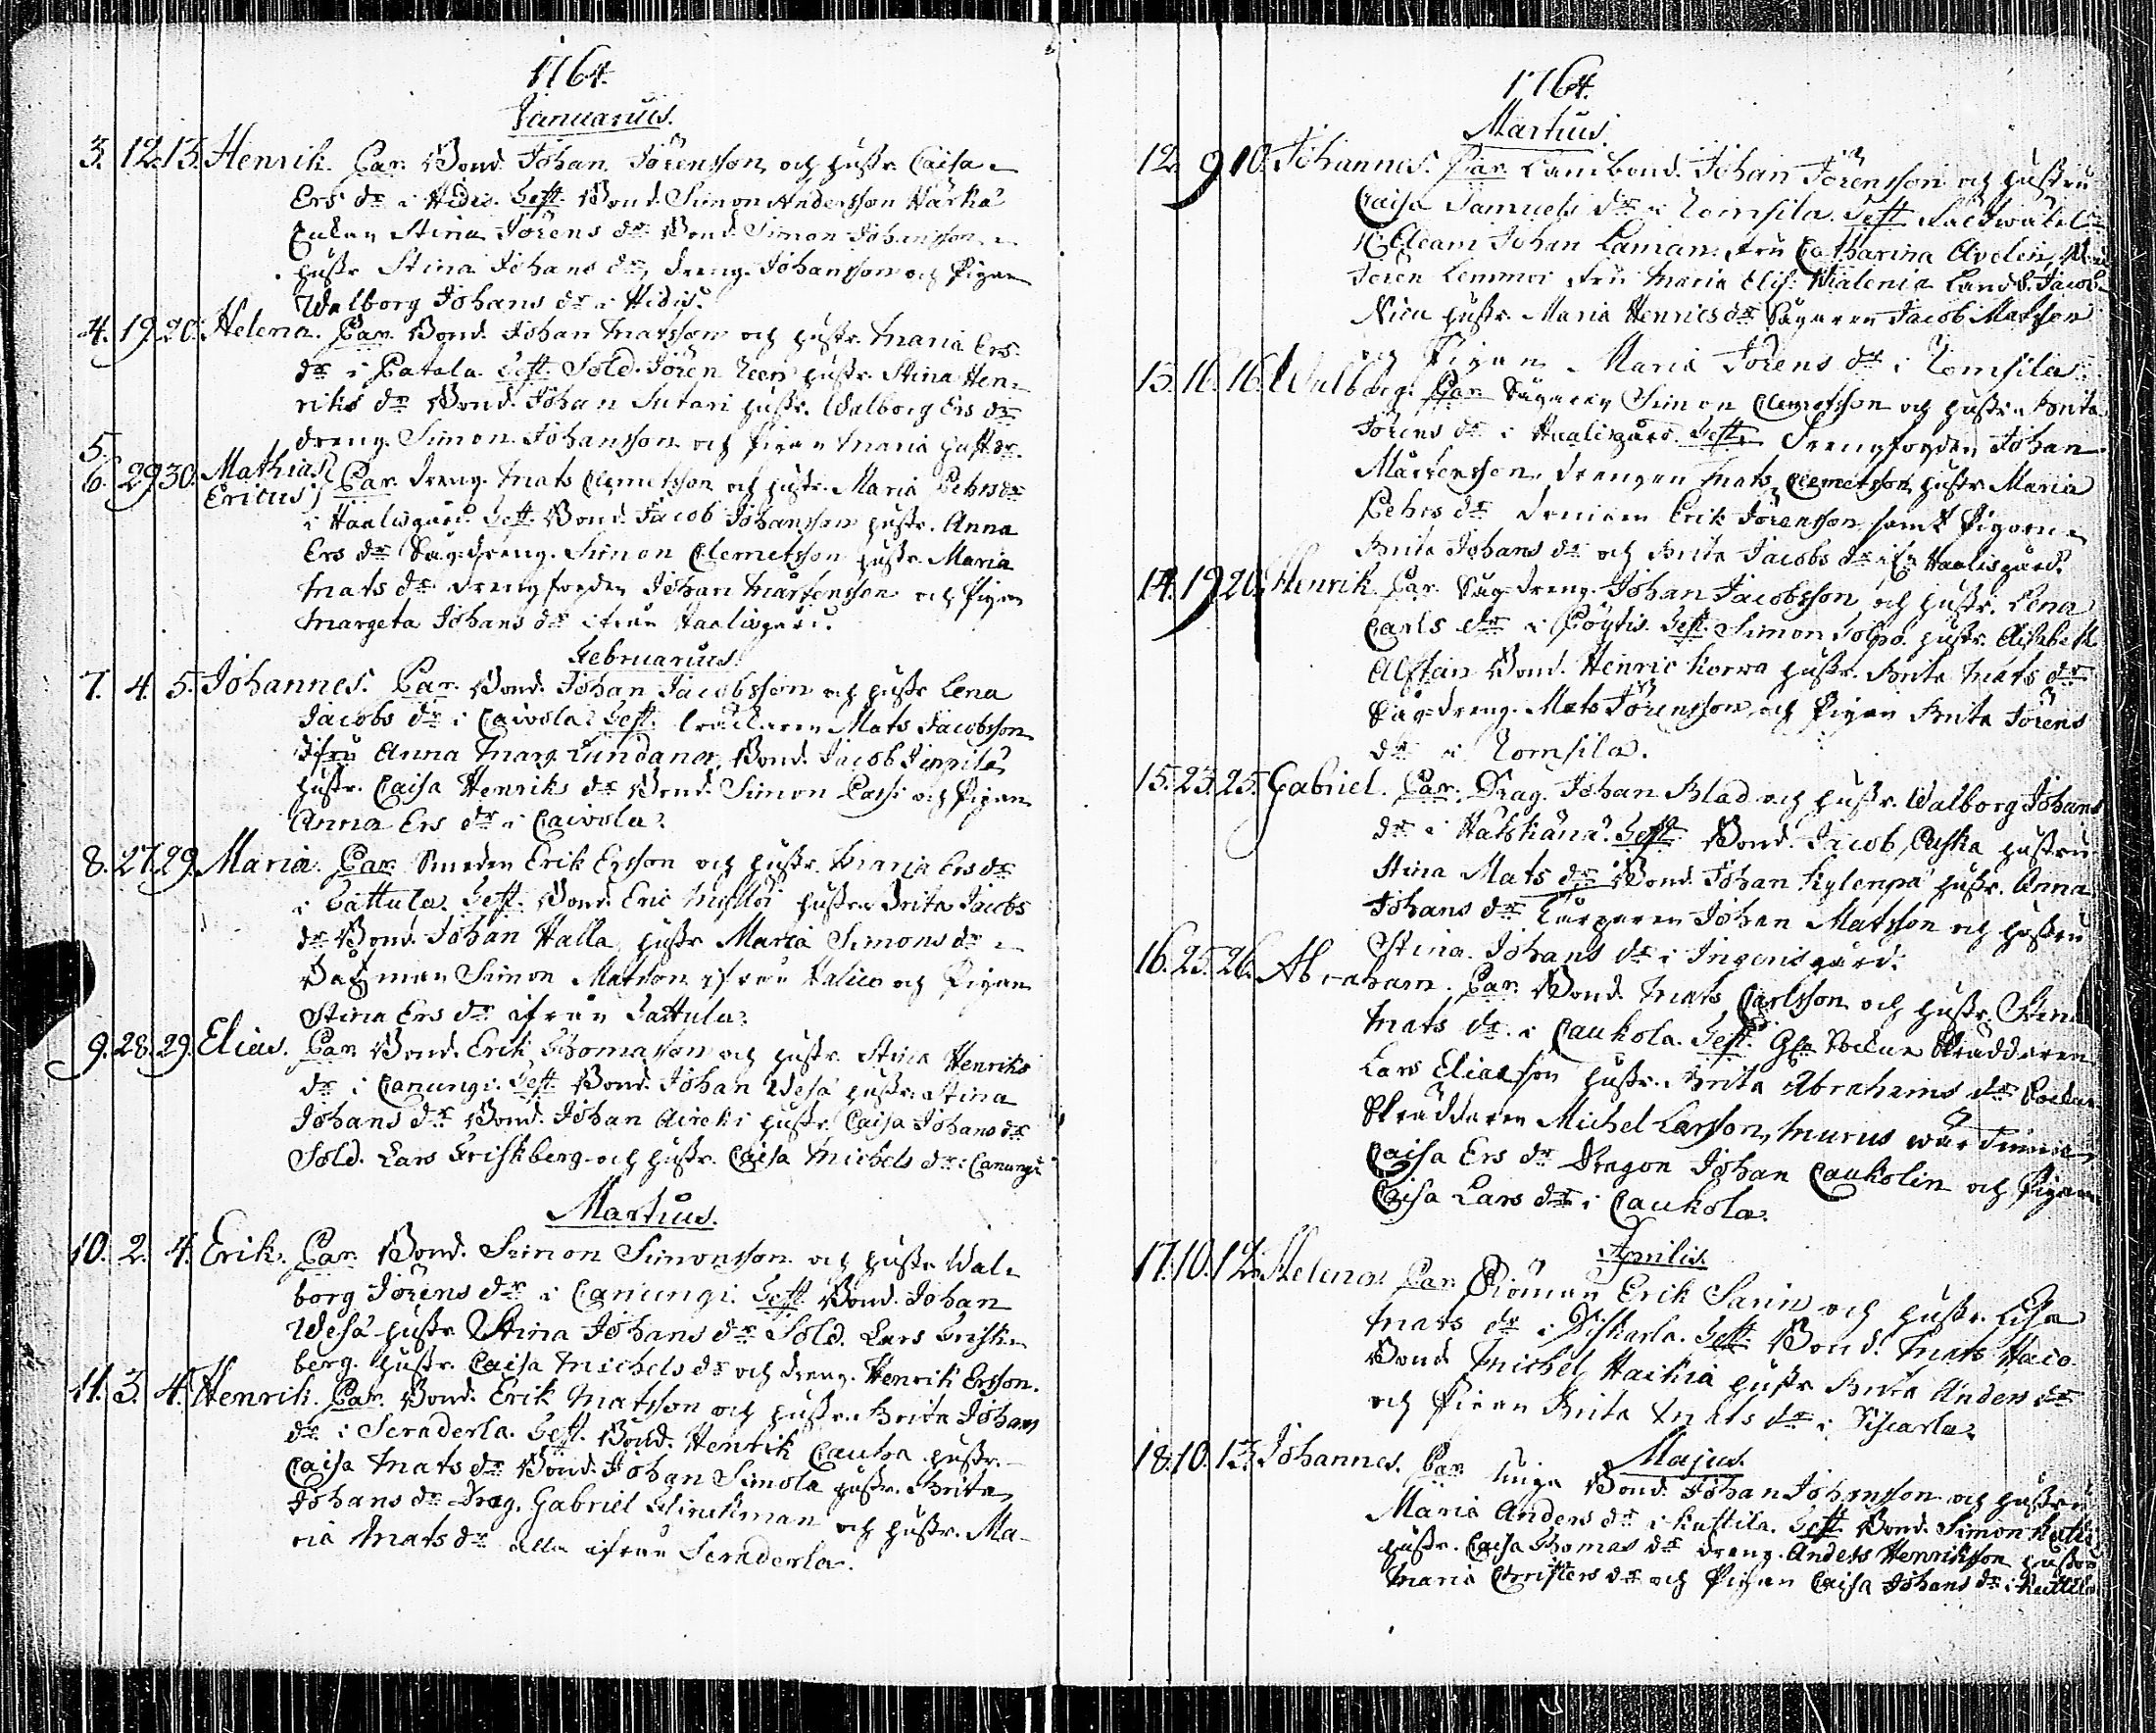 1764.
Januarius.
3. 12. 13. Henrik. Par. Bond. Johan Jörensson och hustr. Caisa
Ers dr i Hidis. Test. Bond. Simon Andersson Härkä
Enkan Stina Jörens dr Bond. Simon Johansson
hustr. Stina Johans dr, dreng. Johansson och Pigan
Walborg Johans dr i Hidis.
4. 19. 20. Helena. Par. Bond. Johan Matsson och hustr. Maria Ers
dr i Patala. Test. Sold. Jören Teen hustr. Stina Hen-
riks dr Bond. Johan Sutari hustr. Walborg Ers dr
dreng. Simon Johansson och Pigan Maria
5.
6. 29. 30. Mathias
Ericus } Par. dreng. Mats Clemetsson och hustr. Maria Pehrs dr
i Haalisgård. Test. Bond. Jacob Johansson hustr. Anna
Ers dr Sågdreng. Simon Clemetsson hustr. Maria
Mats dr drengfogden Johan Mårtensson och Pigan
Margeta Johans dr ifrån Haalisgård.
Februarius.
7. 4. 5. Johannes. Par. Bond. Johan Jacobsson och hustr. Lena
Jacobs dr i Caivola. Test. Mats Jacobsson
Anna Marg. Lundana, Bond. Jacob
hustr. Caisa Henriks dr Bond. Simon Passi och Pigan
Anna Ers dr i Caivola.
8. 27. 29. Maria. Par. Smeden Erik Ersson och hustr. Maria Ers dr
i Sattula. Test. Bond. Eric hustr. Brita Jacobs
dr Bond. Johan Halla hustr. Maria Simons dr
Simon Matsson ifrån Halico och Pigan
Stina Ers dr ifrån Sattula.
9. 28. 29. Elias. Par. Bond. Erik Thomasson och hustr. Stina Henriks
dr i Canungi. Test. Bond. Johan Wesa hustr. Stina
Johans dr Bond. Johan Aireki hustr. Caisa Johans dr
Sold. Lars Friskberg och hustr. Caisa Michels dr i Canungi
Martius.
10. 2. 4. Erik. Par. Bond. Simon Simonsson och hustr. Wal-
borg Jörens dr i Canungi. Test. Bond. Johan
Wesa hustr. Stina Johans dr Sold. Lars Frisk-
berg. hustr. Caisa Michels dr och dreng. Henrik Ersson.
11. 3. 4. Henrik. Par. Bond. Erik Matsson och hustr. Brita Johans
dr i Seraderla. Test. Bond. Henrik Cauha hustr.
Caisa Mats dr Bond. Johan Simola hustr. Brita
Johans dr Drag. Gabriel och hustr. Ma-
ria Mats dr alla ifrån Seraderla.
1764.
Martius.
12. 9. 10. Johannes. Par. Lantbond. Johan Jörensson och hustru
Caisa Samuels dr i Romsila. Test.
Johan Laman. Fru Catharina Avelin,
Jören Lemmoi Fru Maria Elis. Walenia Landb. Jacob
hustr. Maria Henrics dr Sågaren Jacob Matsson
och Pigan Maria Jörens dr i Romsila.
13. 16. 16. Walborg. Par. Sågaren Simon Clemetsson och hustru Brita
Jörens dr i Haalisgård. Test. Drengfogden Johan
Mårtensson. drengen Mats Clemetsson hustr. Maria
Pehrs dr drengen Erik Jörensson samt Pigorne
Brita Johans dr och Brita Jacobs dr ifr. Haalisgård.
14. 19. 20. Henrik. Par. Sågdreng. Johan Jacobsson och hustr. Lena
Carls dr i Pöytis. Test. Simon hustr. Elisabeth
Alftan Bond. Henric Korwa hustr. Brita Mats dr
Sågdreng. Mats Jörensson och Pigan Brita Jörens
dr i Romsila.
15. 23. 25. Gabriel. Par. Drag. Johan Blad och hustr. Walborg Johans
dr i Hätskänä. Test. Bond. Jacob Puska hustru
Stina Mats dr Bond. Johan Kylenpä hustr. Anna
Johans dr Johan Matsson och hustru
Stina Johans dr i Ingerisgård.
16. 25. 26. Abraham. Par. Bond. Mats Carlsson och hustr.
Mats dr i Caukola. Test. Sockne Skräddaren
Lars Eliasson hustr. Brita Abrahams dr Sockne
Skräddaren Michel Larsson,
Caisa Ers dr Dragon Johan Caukolin och Pigan
Caisa Lars dr i Caukola.
Aprilis.
17. 10. 12. Helena. Par. Erik Sarin och hustr. Lisa
Mats dr i Piskarla. Test. Bond. Mats
Bond. Michel Haikia hustr. Brita Anders dr
och Pigan Brita Mats dr i Piscarla.
Majus.
18. 10. 13. Johannes. Par. Unga Bond. Johan Johansson och hustru
Maria Anders dr i Kuttila. Test. Bond. Simon
hustr. Caisa Thomas dr dreng. Anders Henriksson hustru
Maria Christers dr och Pigan Caisa Johans dr i Kuttila